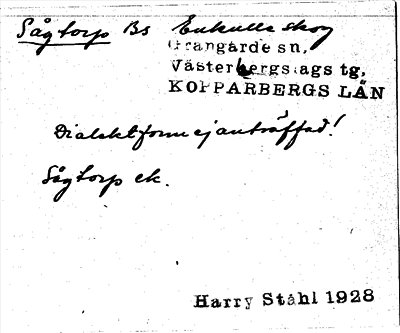 Sågtorp Bs Enkullen skog
Grangärde sn,
Västerbergslags tg,
KOPPARBERGS LÄN
Dialektform ej anträffad!
Sågtorp ek.
Harry Ståhl 1928